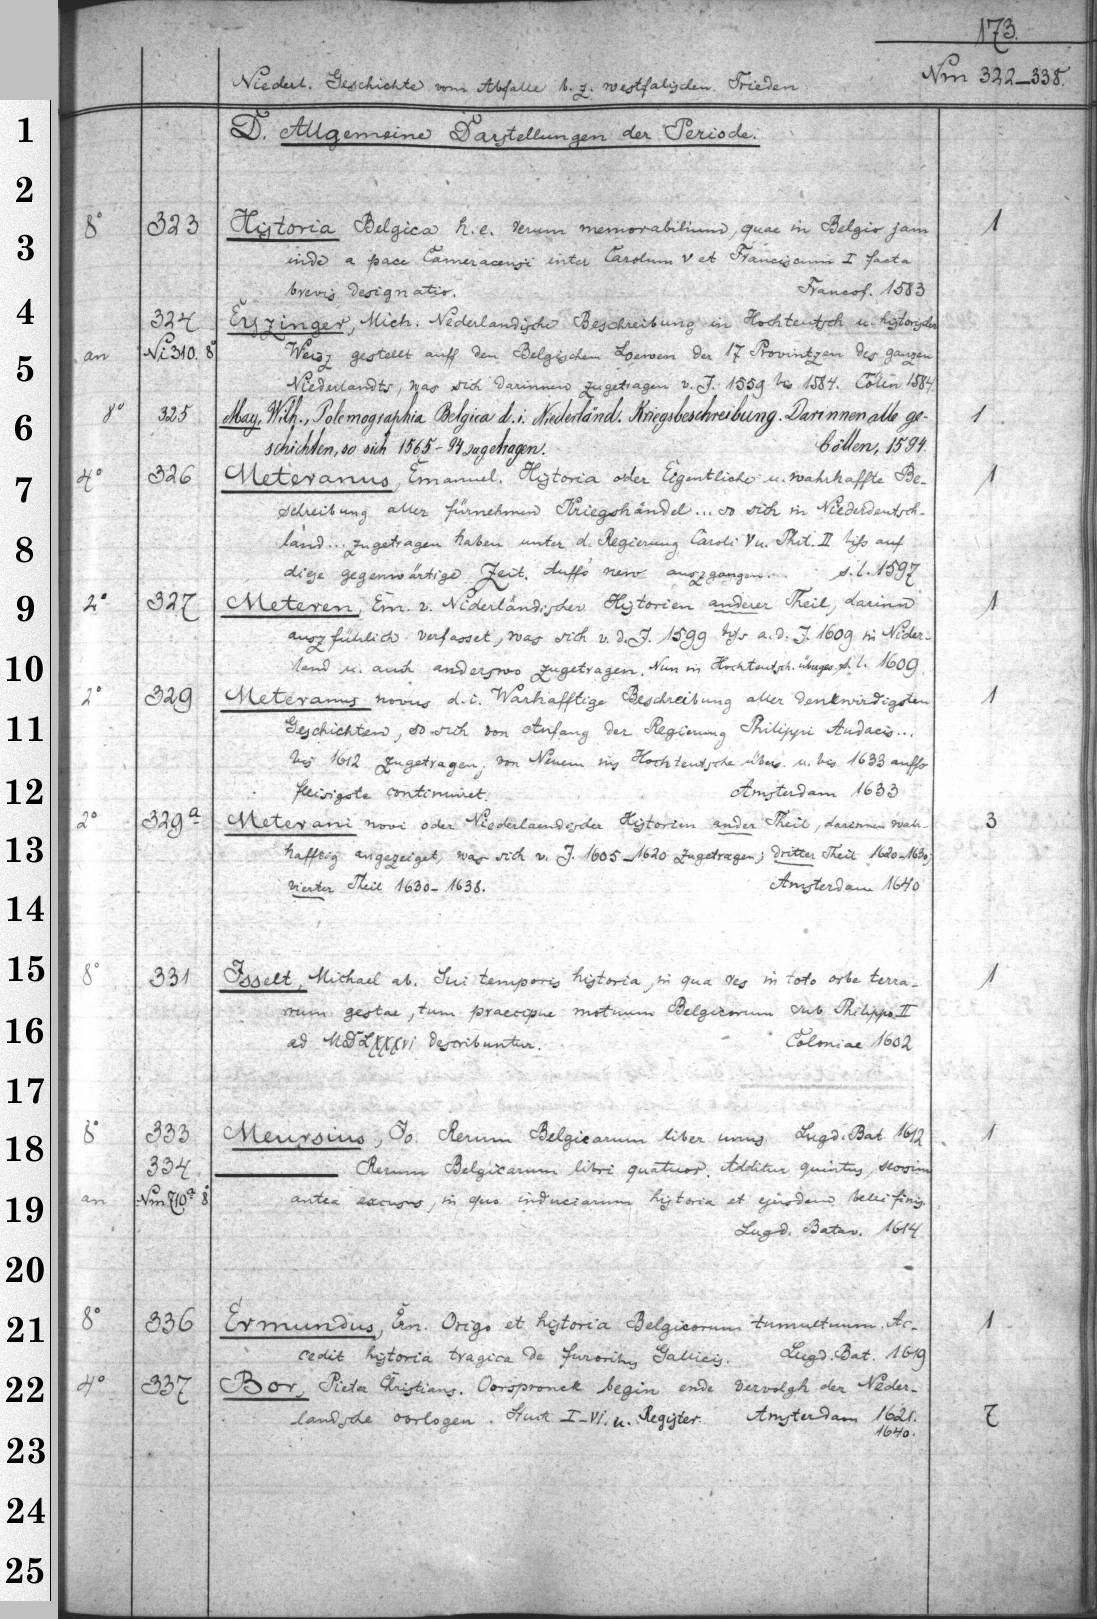 173.
Niederl. Geschichte vom Abfalle b. z. westfälischen Frieden Nm 322-338.
1 D. Allgemeine Darstellungen der Periode.
2
8° 323 Historia Belgica h. e. rerum memorabilium, quae in Belgio jam 1
3 inde a pace Cameracensi inter Carolum V et Franciscum I facta
brevis designatio. Francof. 1583
4 324 Eyzinger, Mich. Nederlandische Beschreibung in Hochteutsch u. historischer
an Ni 310. 8° Weisz gestellt auff den Belgischen Loewen der 17 Provintzen des ganzen
5 Niederlandts, was sich darinnen zugetragen v. J. 1559 bis 1584. Cölln 1584.
8° 325 May, Wilh., Polemographia Belgica d. i. Niederländ. Kriegsbeschreibung. Darinnen alle ge- 1
6 schichten, so sich 1565-94 zugetragen. Cöllen, 1594.
4° 326 Meteranus, Emanuel. Historia oder Eigentliche u. wahrhaffte Be- 1
7 schreibung aller fürnehmen Kriegshändel... so sich in Niederdeutsch-
8 land... zugetragen haben unter d. Regierung Caroli V u. Phil. II biss auf
diese gegenwärtige Zeit. Auffs new auszgangen. s. l. 1597
9 2° 327 Meteren, Em. v. Niderländischer Historien anderer Theil, darinn 1
auszführlich verfasset, was sich v. d. J. 1599 bis a. d. J. 1609 in Nider-
10 land u. auch anderswo zugetragen. Nun in Hochteutsch. überges. s. l. 1609
2° 329 Meteranus novus d. i. Warhafftige Beschreibung aller denkwirdigsten 1
11 Geschichten, so sich von Anfang der Regierung Philippi Audacis...
bis 1612 zugetragen, von Neuem ins Hochteutsche übers. u. bis 1633 auffs
12 fleisigste continuiret. Amsterdam 1633
2° 329a Meterani novi oder Niederlaendischer Historien ander Theil, darinnen war- 3
13 hafftig angezeiget, was sich v. J. 1605-1620 zugetragen; dritter Theil 1620-1630;
vierter Theil 1630-1638. Amsterdam 1640
14
15 8° 331 Isselt, Michael ab. Sui temporis historia, in qua res in toto orbe terra- 1
rum gestae, tum praecipue motuum Belgicorum sub Philippo II
16 ad MDLXXXVI describuntur. Coloniae 1602
17
18 8° 333 Meursius, Jo. Rerum Belgicarum liber unus Lugd. Bat 1612 1
334 Rerum Belgicarum libri quatuor. Additur quintus, seorsim
19 an Nm 710a 8° antea excusus, in quo induciarum historia et ejusdem belli finis.
Lugd. Batav. 1614
20
21 8° 336 Ermundus, Ern. Origo et historia Belgicorum tumultuum. Ac- 1
cedit historia tragica de furoribus Gallicis. Lugd. Bat. 1619
22 4° 337 Bor, Pieter Christians. Oorspronck begin ende vervolgh der Neder-
landsche oorlogen. Stuck I-VI. u. Register. Amsterdam 1621. 7
1640.
23
24
25